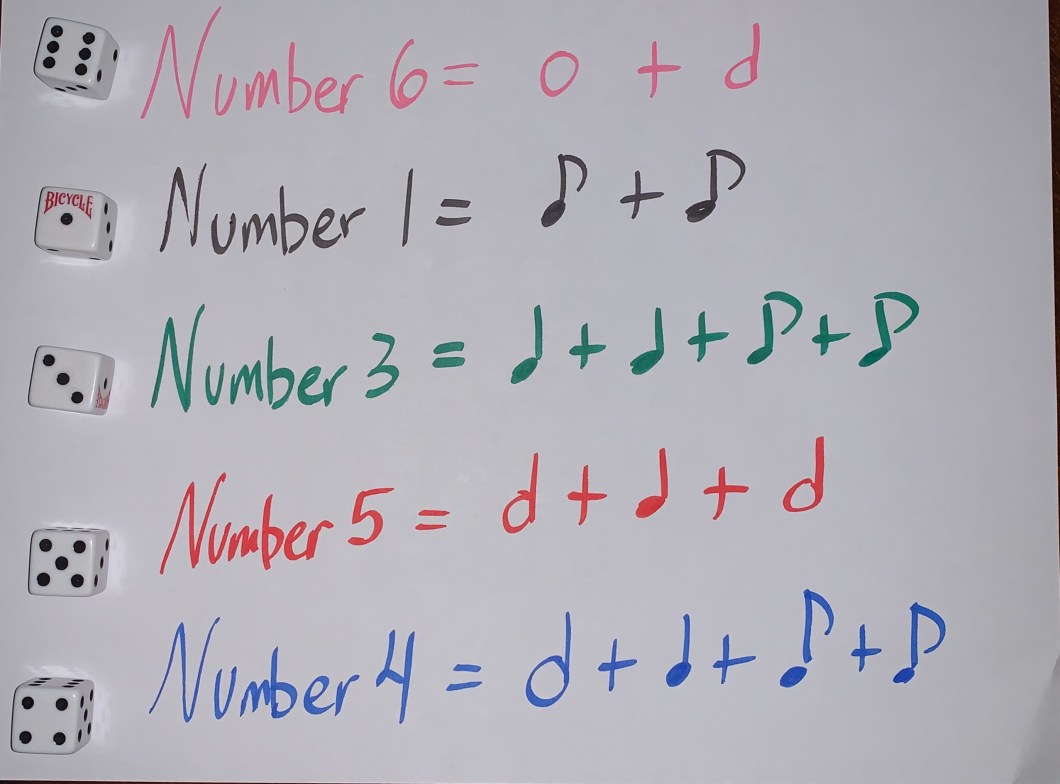 Number 6 = 𝅝 + 𝅗𝅥
BICYCLE
Number 1 = ♪ + ♪
Number 3 = ♩ + ♩ + ♪ + ♪
Number 5 = 𝅗𝅥 + ♩ + 𝅗𝅥
Number 4 = 𝅗𝅥 + ♩ + ♪ + ♪